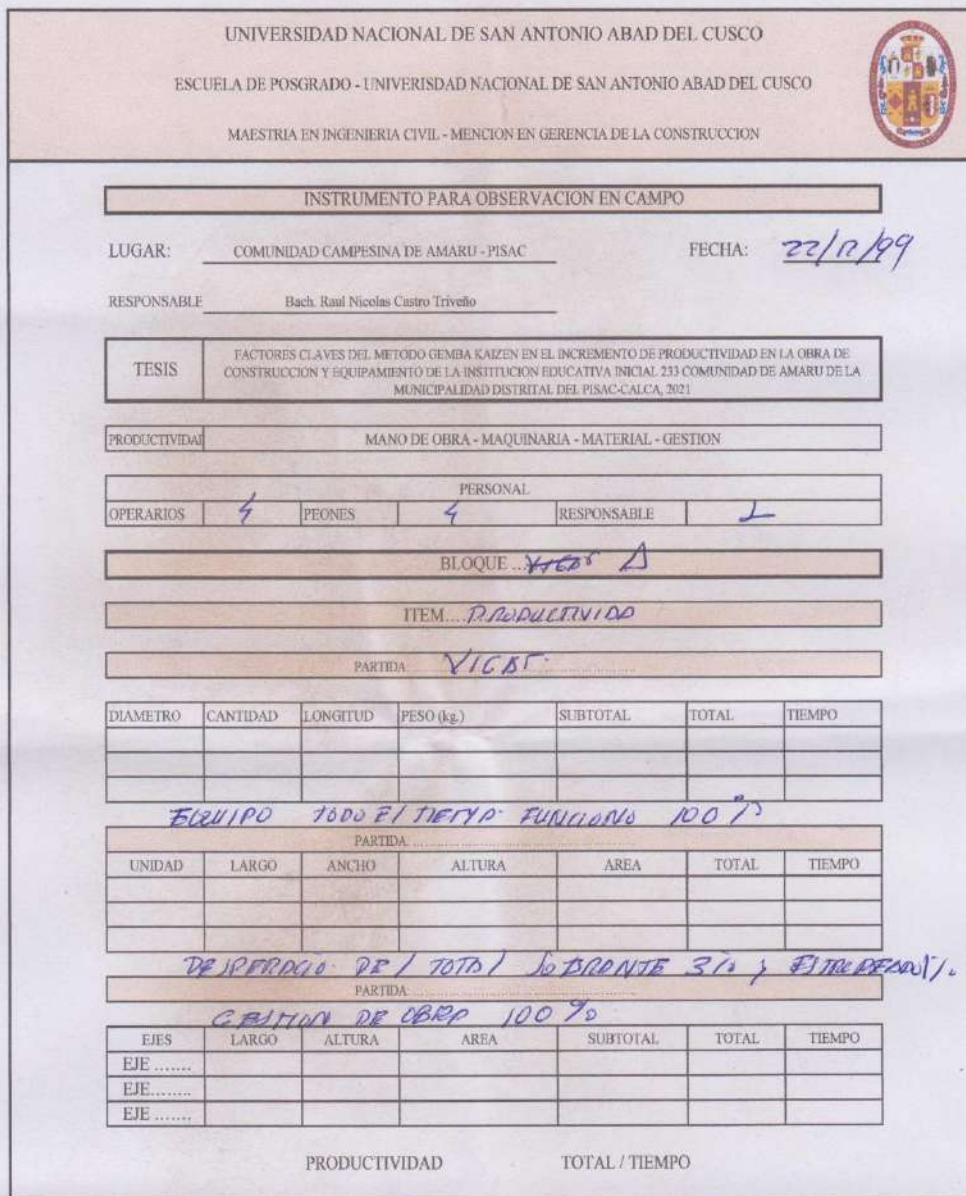 UNIVERSIDAD NACIONAL DE SAN ANTONIO ABAD DEL CUSCO
ESCUELA DE POSGRADO - UNIVERISDAD NACIONAL DE SAN ANTONIO ABAD DEL CUSCO
MAESTRIA EN INGENIERIA CIVIL - MENCION EN GERENCIA DE LA CONSTRUCCION
INSTRUMENTO PARA OBSERVACION EN CAMPO
LUGAR: COMUNIDAD CAMPESINA DE AMARU - PISAC FECHA: 22/12/99
RESPONSABLE Bach. Raul Nicolas Castro Triveño
TESIS FACTORES CLAVES DEL METODO GEMBA KAIZEN EN EL INCREMENTO DE PRODUCTIVIDAD EN LA OBRA DE
CONSTRUCCION Y EQUIPAMIENTO DE LA INSTITUCION EDUCATIVA INICIAL 233 COMUNIDAD DE AMARU DE LA
MUNICIPALIDAD DISTRITAL DEL PISAC-CALCA, 2021
PRODUCTIVIDAD MANO DE OBRA - MAQUINARIA - MATERIAL - GESTION
PERSONAL
OPERARIOS 4 PEONES 4 RESPONSABLE 1
BLOQUE ... A
ITEM.... PRODUCTIVIDA
PARTIDA VIGAS
DIAMETRO CANTIDAD LONGITUD PESO (kg.) SUBTOTAL TOTAL TIEMPO
EQUIPO TODO El TIEMPO FUNCIONO 100 %
PARTIDA
UNIDAD LARGO ANCHO ALTURA AREA TOTAL TIEMPO
DESPERDICIO DEl TOTAl SOBRANTE 3% y
PARTIDA
GESTION DE OBRA 100 %
EJES LARGO ALTURA AREA SUBTOTAL TOTAL TIEMPO
EJE .......
EJE........
EJE .......
PRODUCTIVIDAD TOTAL / TIEMPO